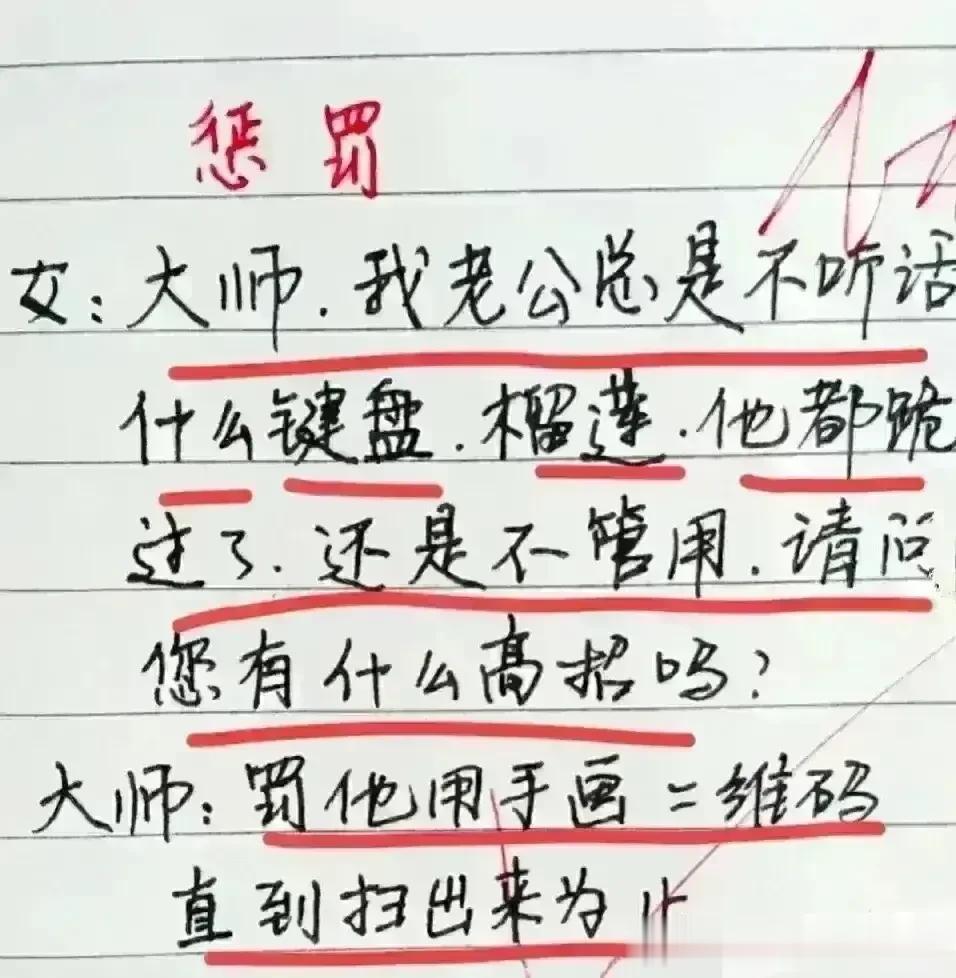 惩罚
女：大师．我老公总是不听话
什么键盘．榴莲．他都跪
过了．还是不管用．请问
您有什么高招吗？
大师：罚他用手画二维码
直到扫出来为止